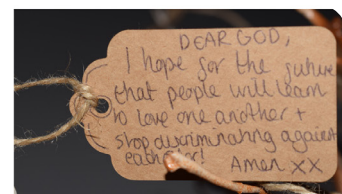 DEAR GOD,
I hope for the future
that people will learn
to love one another +
stop discriminating against
each other! Amen XX